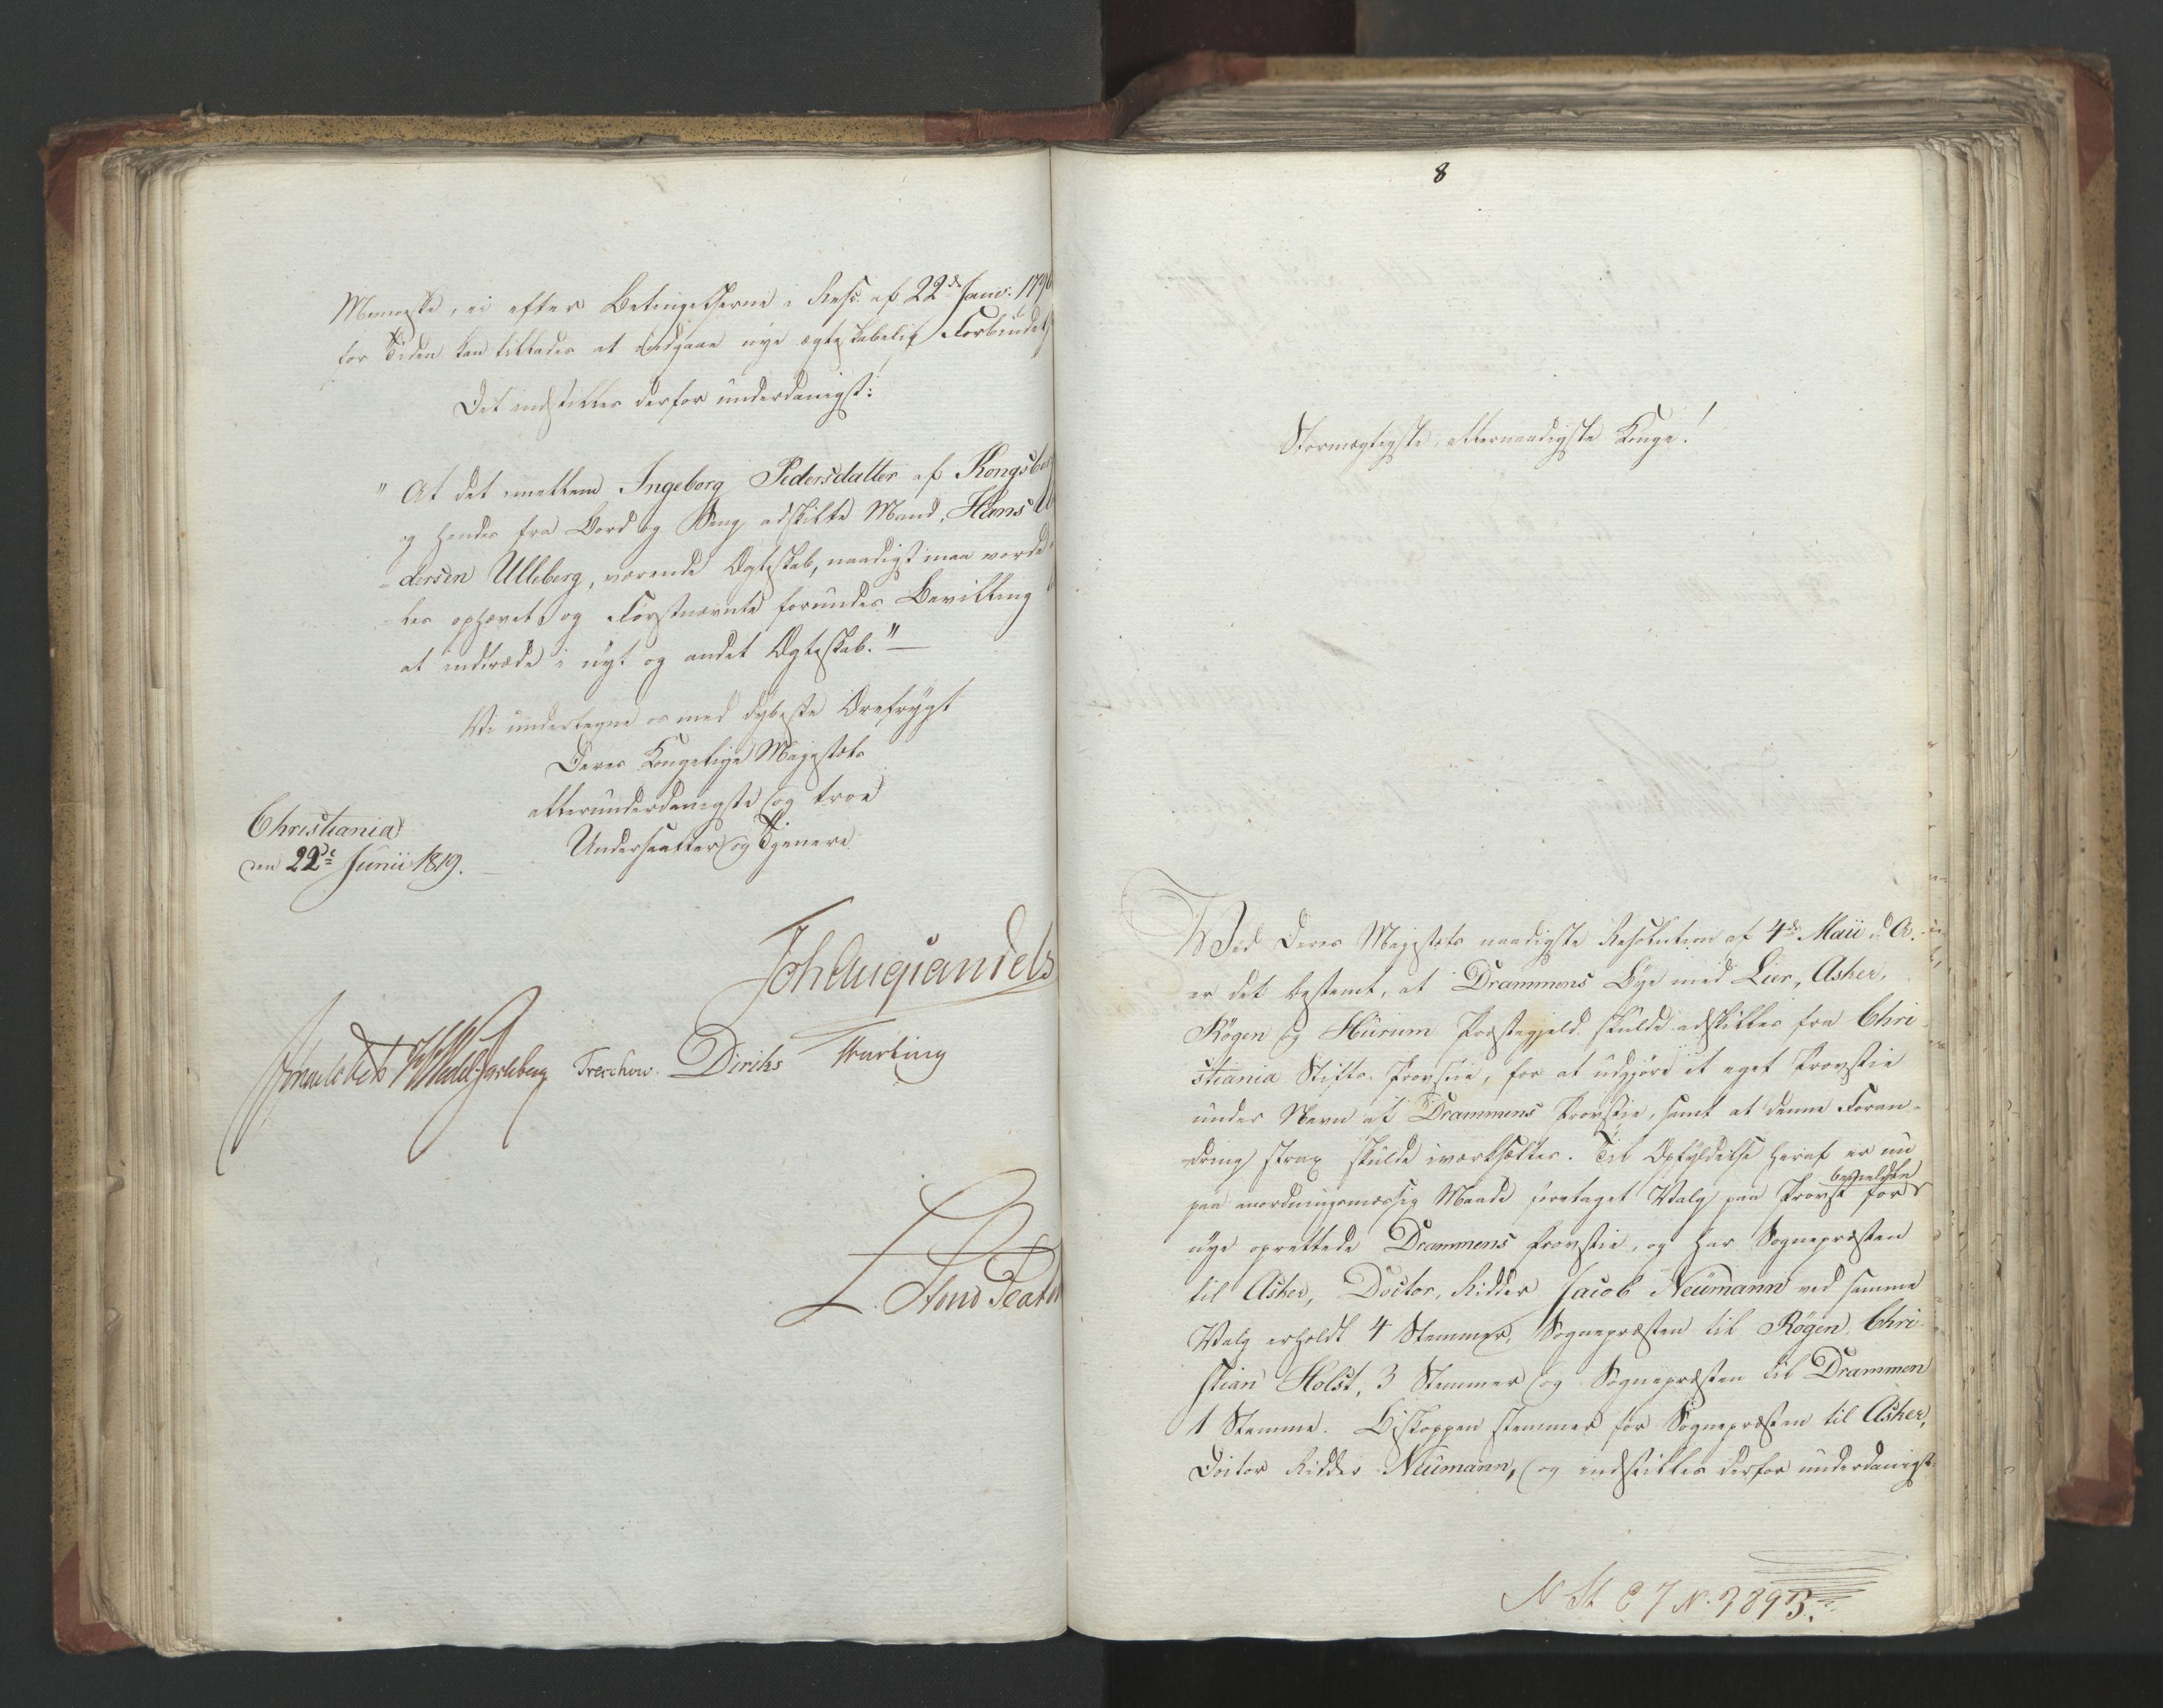 Menneske, ei efter Betingelserne i Resc. af 22de Janv: 1790
for Tiden kan tillades at indgaae nye ægteskabelig Forbindels
Det indstilles derfor underdanigst:
" At det imellem Ingeborg Pedersdatter af Kongsber
og hendes fra Bord og Seng adskilte Mand, Hans
dersen Ulleberg, værende Ægteskab, naadigst maa vorde
les ophævet, og Førstnævnte forundes Bevilling
at indtræde i nyt og andet Ægteskab." —
Vi undertegne os med dybeste Ærefrygt
Deres Kongelige Majestæts
allerunderdanigste og troe
Undersaatter og Tjenere
Christiania
den 22de Junii 1819.
Joh Aug Sandels
Wedel Jarlsberg Treschow. Diriks
8
Stormægtigste, allernaadigste Konge!
Ved Deres Majestæts naadigste Resolution af 4de Maii d. A.
er det bestemt, at Drammens Bye med Lier, Asker,
Røgen og Hurum Præstegjeld skulde adskilles fra Chri-
stiania Stifts-Provstie, for at udgjøre et eget Provstie
under Navn af Drammens Provstie, samt at denne Foran-
dring strax skulde iværksættes. Til Opfyldelse heraf er nu
paa anordningsmæssig Maade foretaget Valg paa Provst for
nye oprettede Drammens Provstie, og har Sognepræsten
til Asker, Doctor, Ridder Jacob Neumann ved samme
Valg erholdt 4 Stemmer, Sognepræsten til Røgen, Chri-
stian Holst, 3 Stemmer og Sognepræsten til Drammen
1 Stemme. Biskoppen stemmer for Sognepræsten til Asker,
Doctor Ridder Neumann, og indstilles derfor underdanigst: